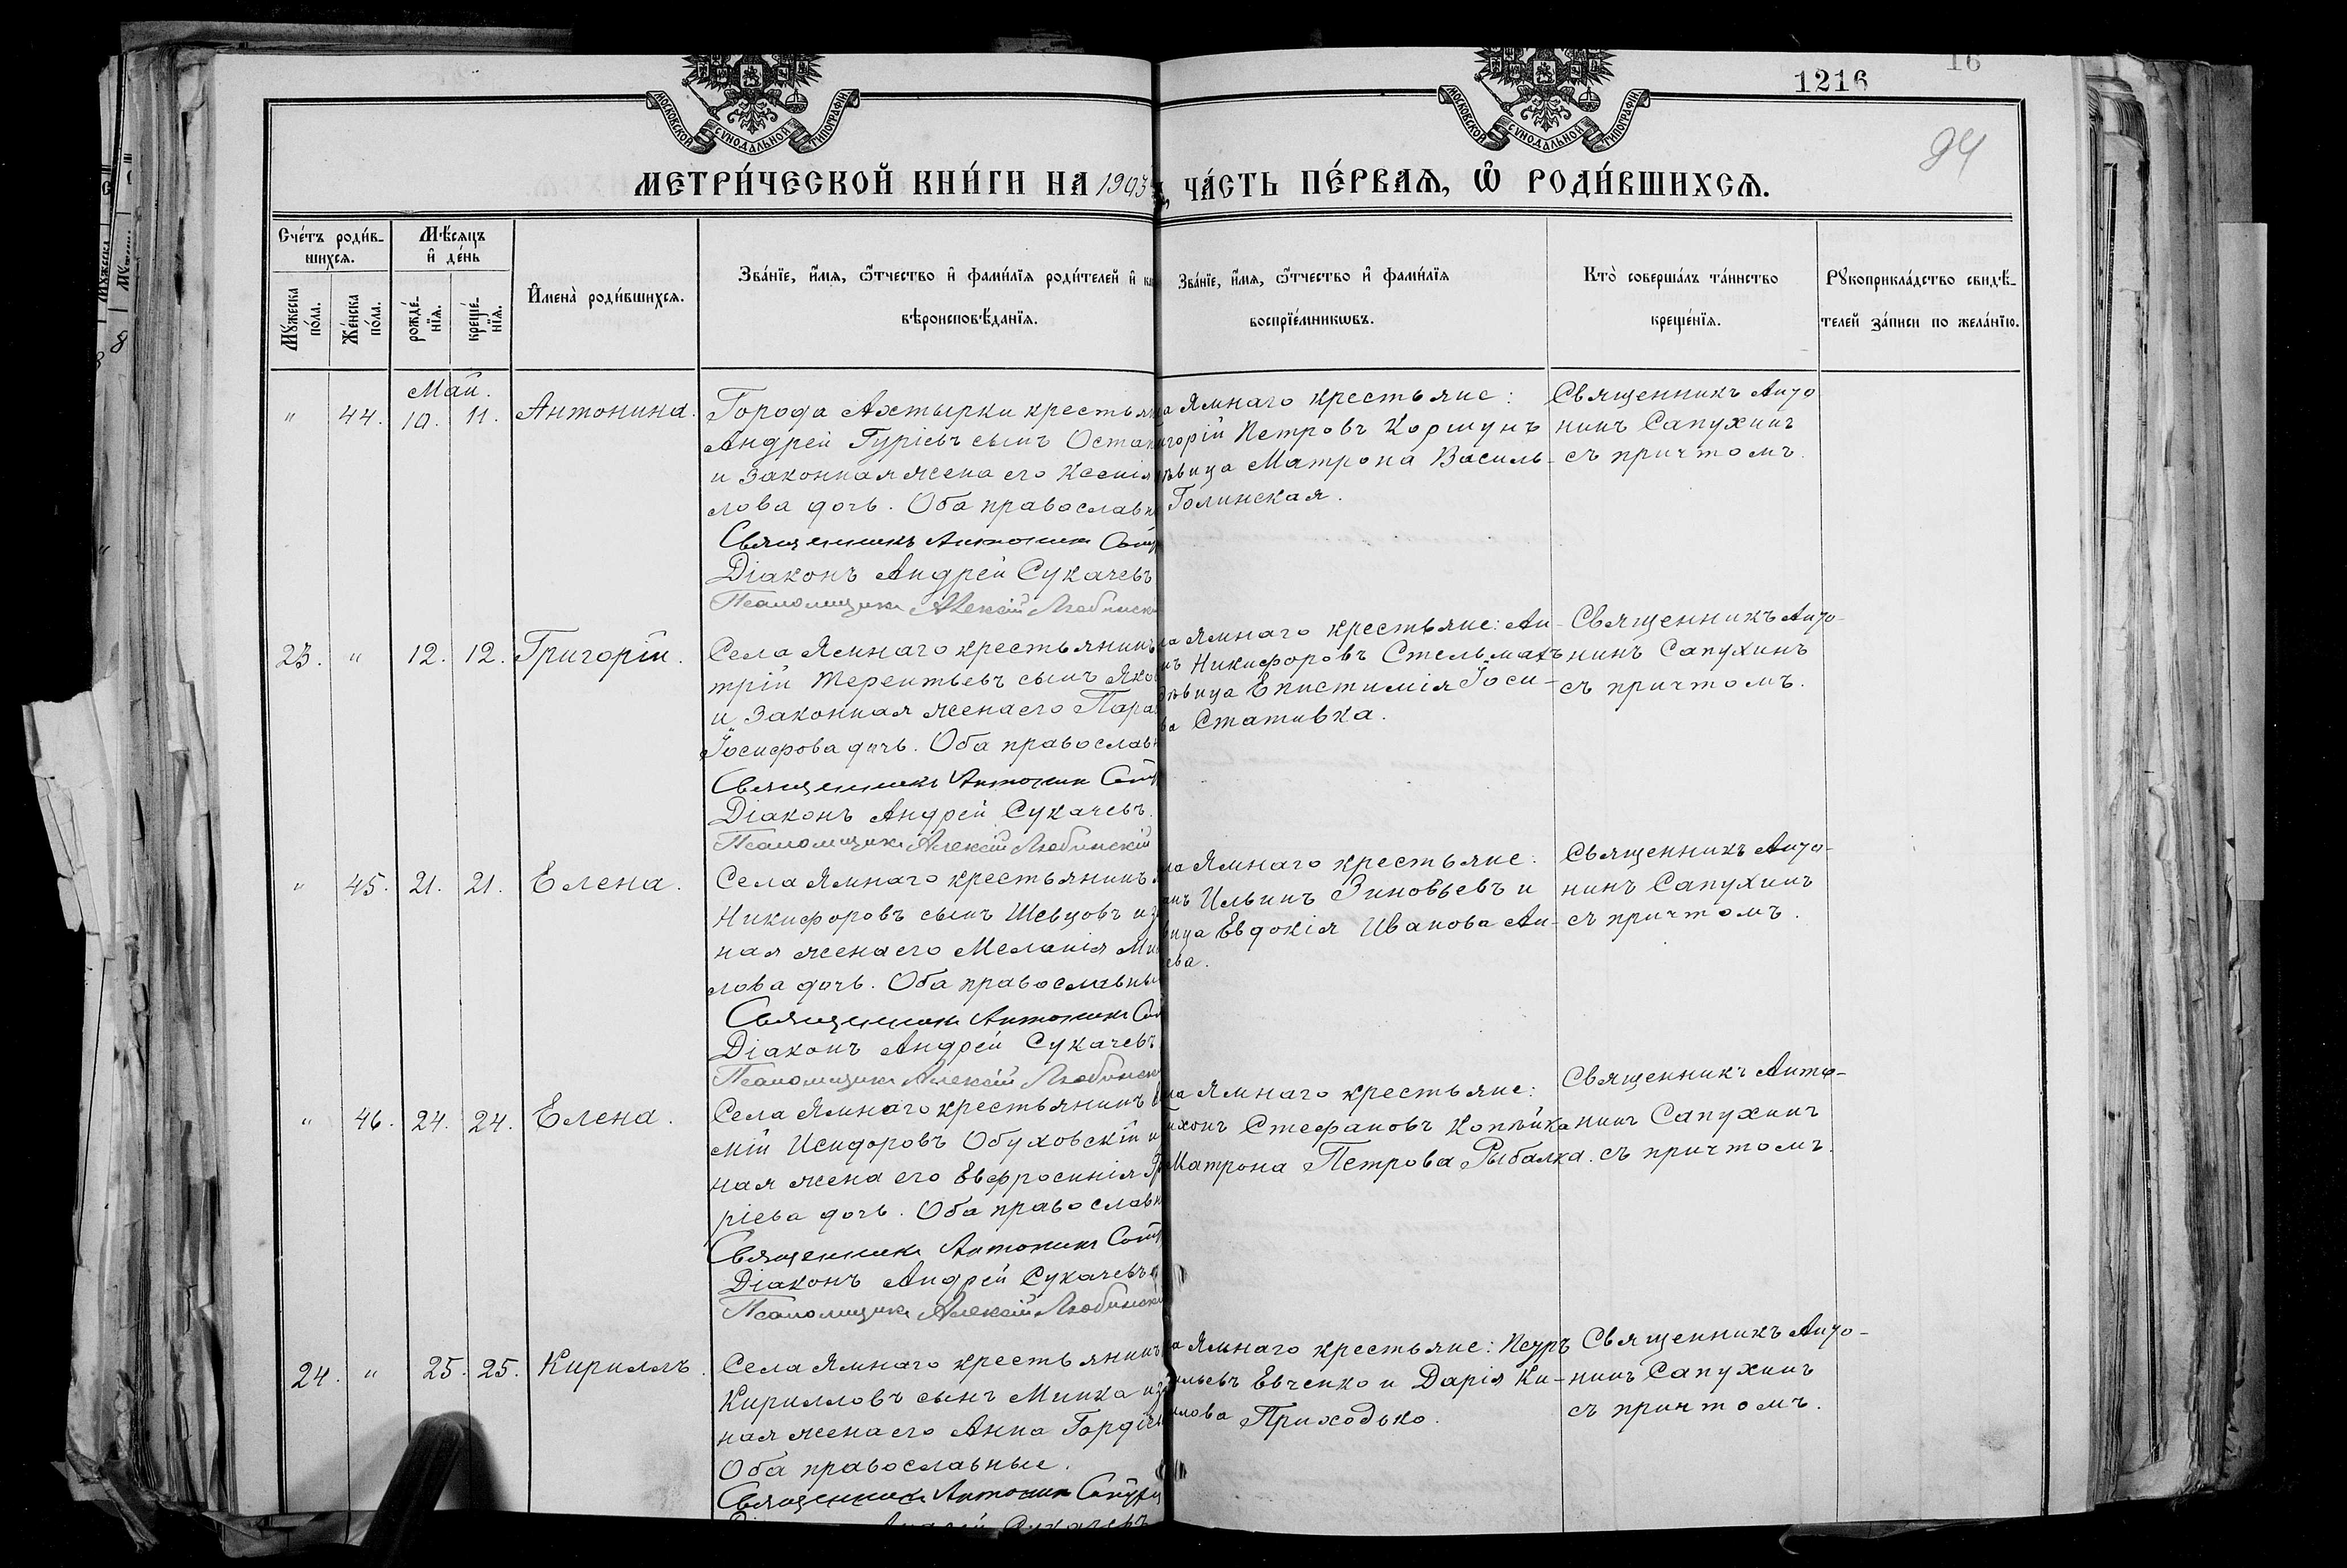 1216
16
94
МОСКОВСКОЙ СѴНОДАЛЬНОЙ ТИПОГРАФІИ
МОСКОВСКОЙ СѴНОДАЛЬНОЙ ТИПОГРАФІИ
МЕТРИ́ЧЕСКОЙ КНИ́ГИ НА 1903
ЧА́СТЬ ПЕ́РВАЯ, Ѡ҆ РОДИ́ВШИХСЯ.
Сче́тъ роди́в-
шихся.
Мꙋ́жеска по́ла.
Же́нска по́ла.
Мѣ́сяцъ
и҆ де́нь
рожде́-
нїя.
креще́-
нїя.
И҆мена̀ роди́вшихся.
Зва́нїе, и҆́мя, ѻ҆́тчество и҆ фами́лїя роди́телей и҆
вѣроисповѣ́данїя.
Зва́нїе, и҆́мя, ѻ҆́тчество и҆ фами́лїя
воспрїе́мникѡвъ.
Кто̀ соверша́лъ та́инство
креще́нїя.
Рꙋкоприкла́дство свидѣ́-
телей за́писи по жела́нїю.
Май.
" 44. 10. 11. Антонина.
Города Ахтырки крестьян
Андрей Гурієвъ сынъ Остап
и законная жена его Ксенія
лова дочь. Оба православн
Священникъ Антонин Сапу
Діаконъ Андрей Сукачевъ
Псаломщикъ Алексій Любинск
а Ямнаго крестьяне:
игорій Петровъ Коршунъ
ѣвица Матрона Василь-
Голинская.
Священникъ Анто
нинъ Сапухинъ
съ причтомъ.
23. " 12. 12. Григорій.
Села Ямнаго крестьянинъ
трій Терентьевъ сынъ Яко
и законная жена его Пара
Іосифова дочь. Оба православн
Священникъ Антонин Сапу
Діаконъ Андрей Сукачевъ.
Псаломщикъ Алексій Любинскій
ла Ямнаго крестьяне: Ан-
нъ Никифоровъ Стельмахъ
ѣвица Епистимія Іоси-
ва Стативка.
Священникъ Анто-
нинъ Сапухинъ
съ причтомъ.
" 45. 21. 21. Елена.
Села Ямнаго крестьянинъ
Никифоровъ сынъ Шевцовъ и з
ная жена его Меланія Ми
лова дочь. Оба православны
Священникъ Антонинъ Сап
Діаконъ Андрей Сукачевъ
Псаломщикъ Алексій Любинск
ла Ямнаго крестьяне:
анъ Ильинъ Зиновьевъ и
вица Евдокія Иванова Ан-
ева.
Священникъ Анто-
нинъ Сапухинъ
съ причтомъ.
" 46. 24. 24. Елена.
Села Ямнаго крестьянинъ
мій Исидоровъ Обуховскій и
ная жена его Евфросинія Гр
ріева дочь. Оба православн
Священникъ Антонинъ Сапу
Діаконъ Андрей Сукачевъ
Псаломщикъ Алексій Любинскі
ла Ямнаго крестьяне:
ихонъ Стефановъ Копѣйка
Матрона Петрова Рыбалка.
Священникъ Анто-
нинъ Сапухинъ
съ причтомъ.
24. " 25. 25. Кириллъ.
Села Ямнаго крестьянинъ
Кирилловъ сынъ Минка и з
ная жена его Анна Гордіев
Оба православные.
Священникъ Антонин Сапухи
Андрей Сукачевъ
а Ямнаго крестьяне: Петръ
ильевъ Евченко и Дарія Ки-
илова Приходько.
Священникъ Анто-
нинъ Сапухинъ
съ причтомъ.